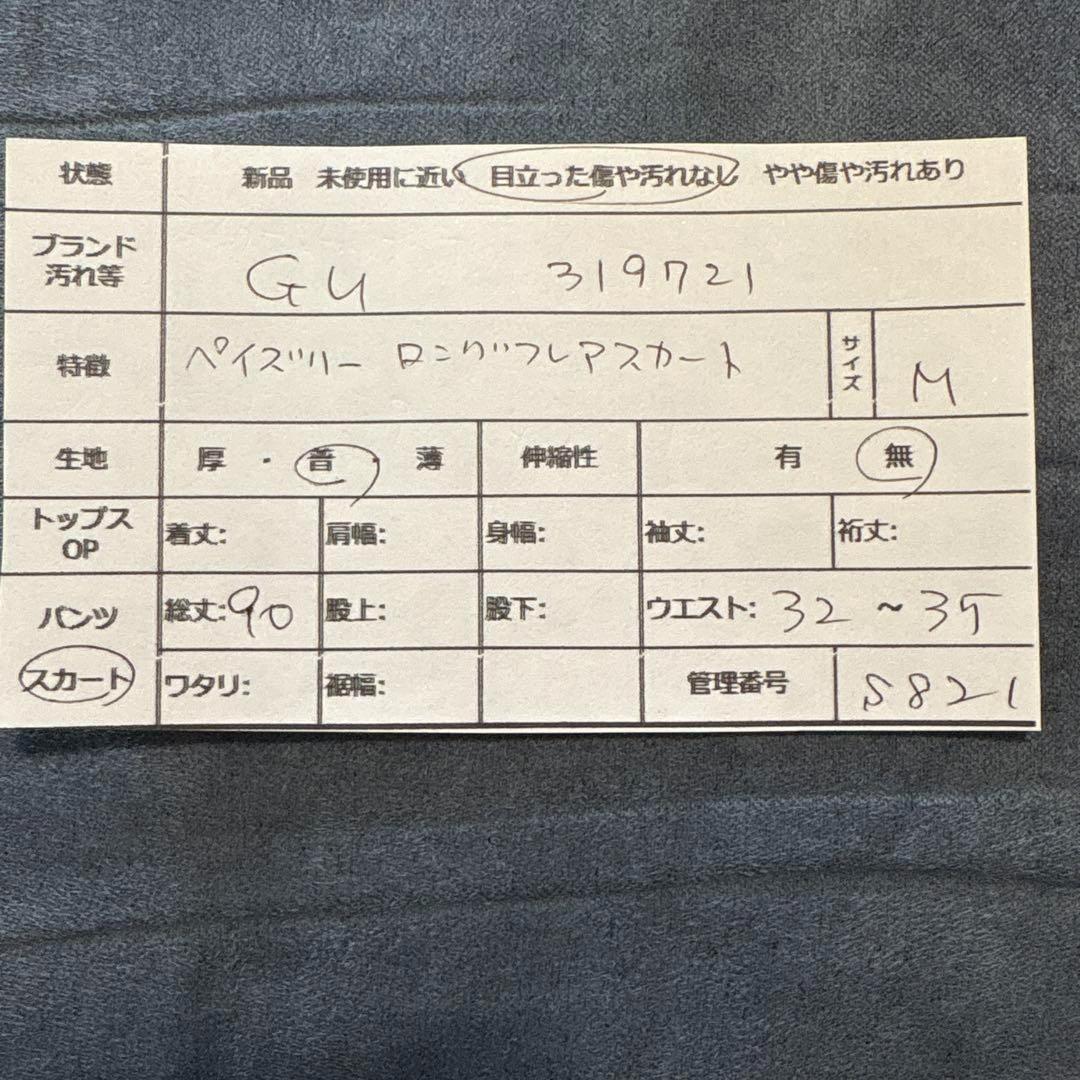 状態 新品 未使用に近い 目立った傷や汚れなし やや傷や汚れあり
ブランド
汚れ等 GU 319721
特徴 ペイズリー ロングフレアスカート サイズ M
生地 厚 ・ 普 ・ 薄 伸縮性 有 無
トップス
OP 着丈: 肩幅: 身幅: 袖丈: 裄丈:
パンツ 総丈:90 股上: 股下: ウエスト: 32 ~ 35
スカート ワタリ: 裾幅: 管理番号 S821